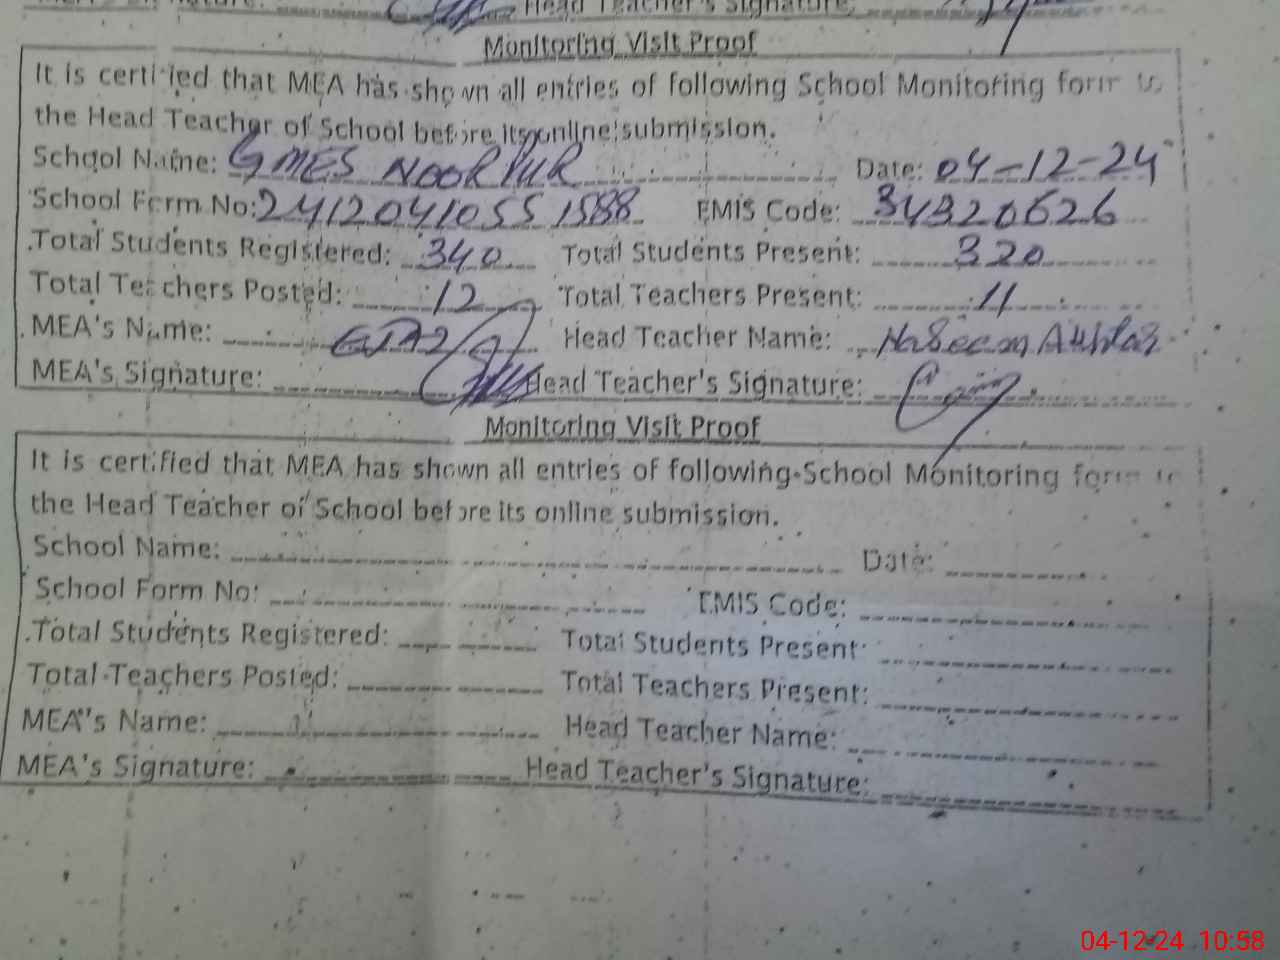 Head Teacher's Signature:
Monitoring Visit Proof
It is certified that MEA has shown all entries of following School Monitoring form to
the Head Teacher of School before its online submission.
School Name: GMES NOORPUR Date: 04-12-24
School Form No: 24120410551588 EMIS Code: 34320626
Total Students Registered: 340 Total Students Present: 320
Total Teachers Posted: 12 Total Teachers Present: 11
MEA's Name: Head Teacher Name:
MEA's Signature: Head Teacher's Signature:
Monitoring Visit Proof
It is certified that MEA has shown all entries of following School Monitoring form to
the Head Teacher of School before its online submission.
School Name: Date:
School Form No: EMIS Code:
Total Students Registered: Total Students Present:
Total Teachers Posted: Total Teachers Present:
MEA's Name: Head Teacher Name:
MEA's Signature: Head Teacher's Signature:
04-12-24 10:58